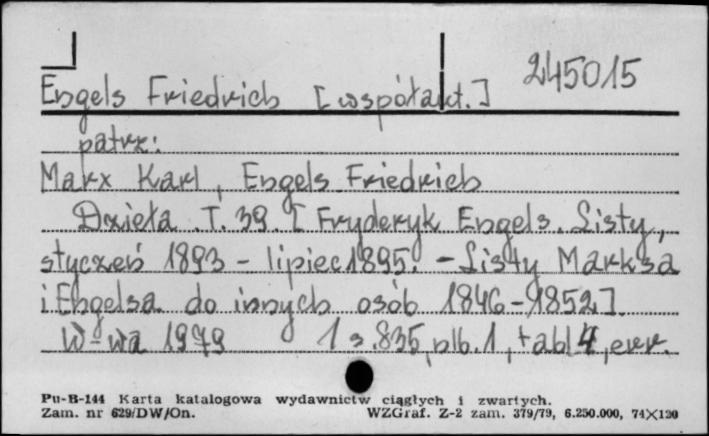 245015
Engels Friedrich [współaut.]
patrz:
Marx Karl, Engels Friedrich
Dzieła. T. 39. [Fryderyk Engels. Listy,
styczeń 1893 - lipiec 1895. - Listy Marksa
i Engelsa do innych osób 1846-1852].
W-wa 1979 1 s. 835, nlb. 1, tabl 4, err.
Pu-B-144 Karta katalogowa wydawnictw ciągłych i zwartych.
Zam. nr 629/DW/On. WZGraf. Z-2 zam. 379/79, 6.250.000, 74×120